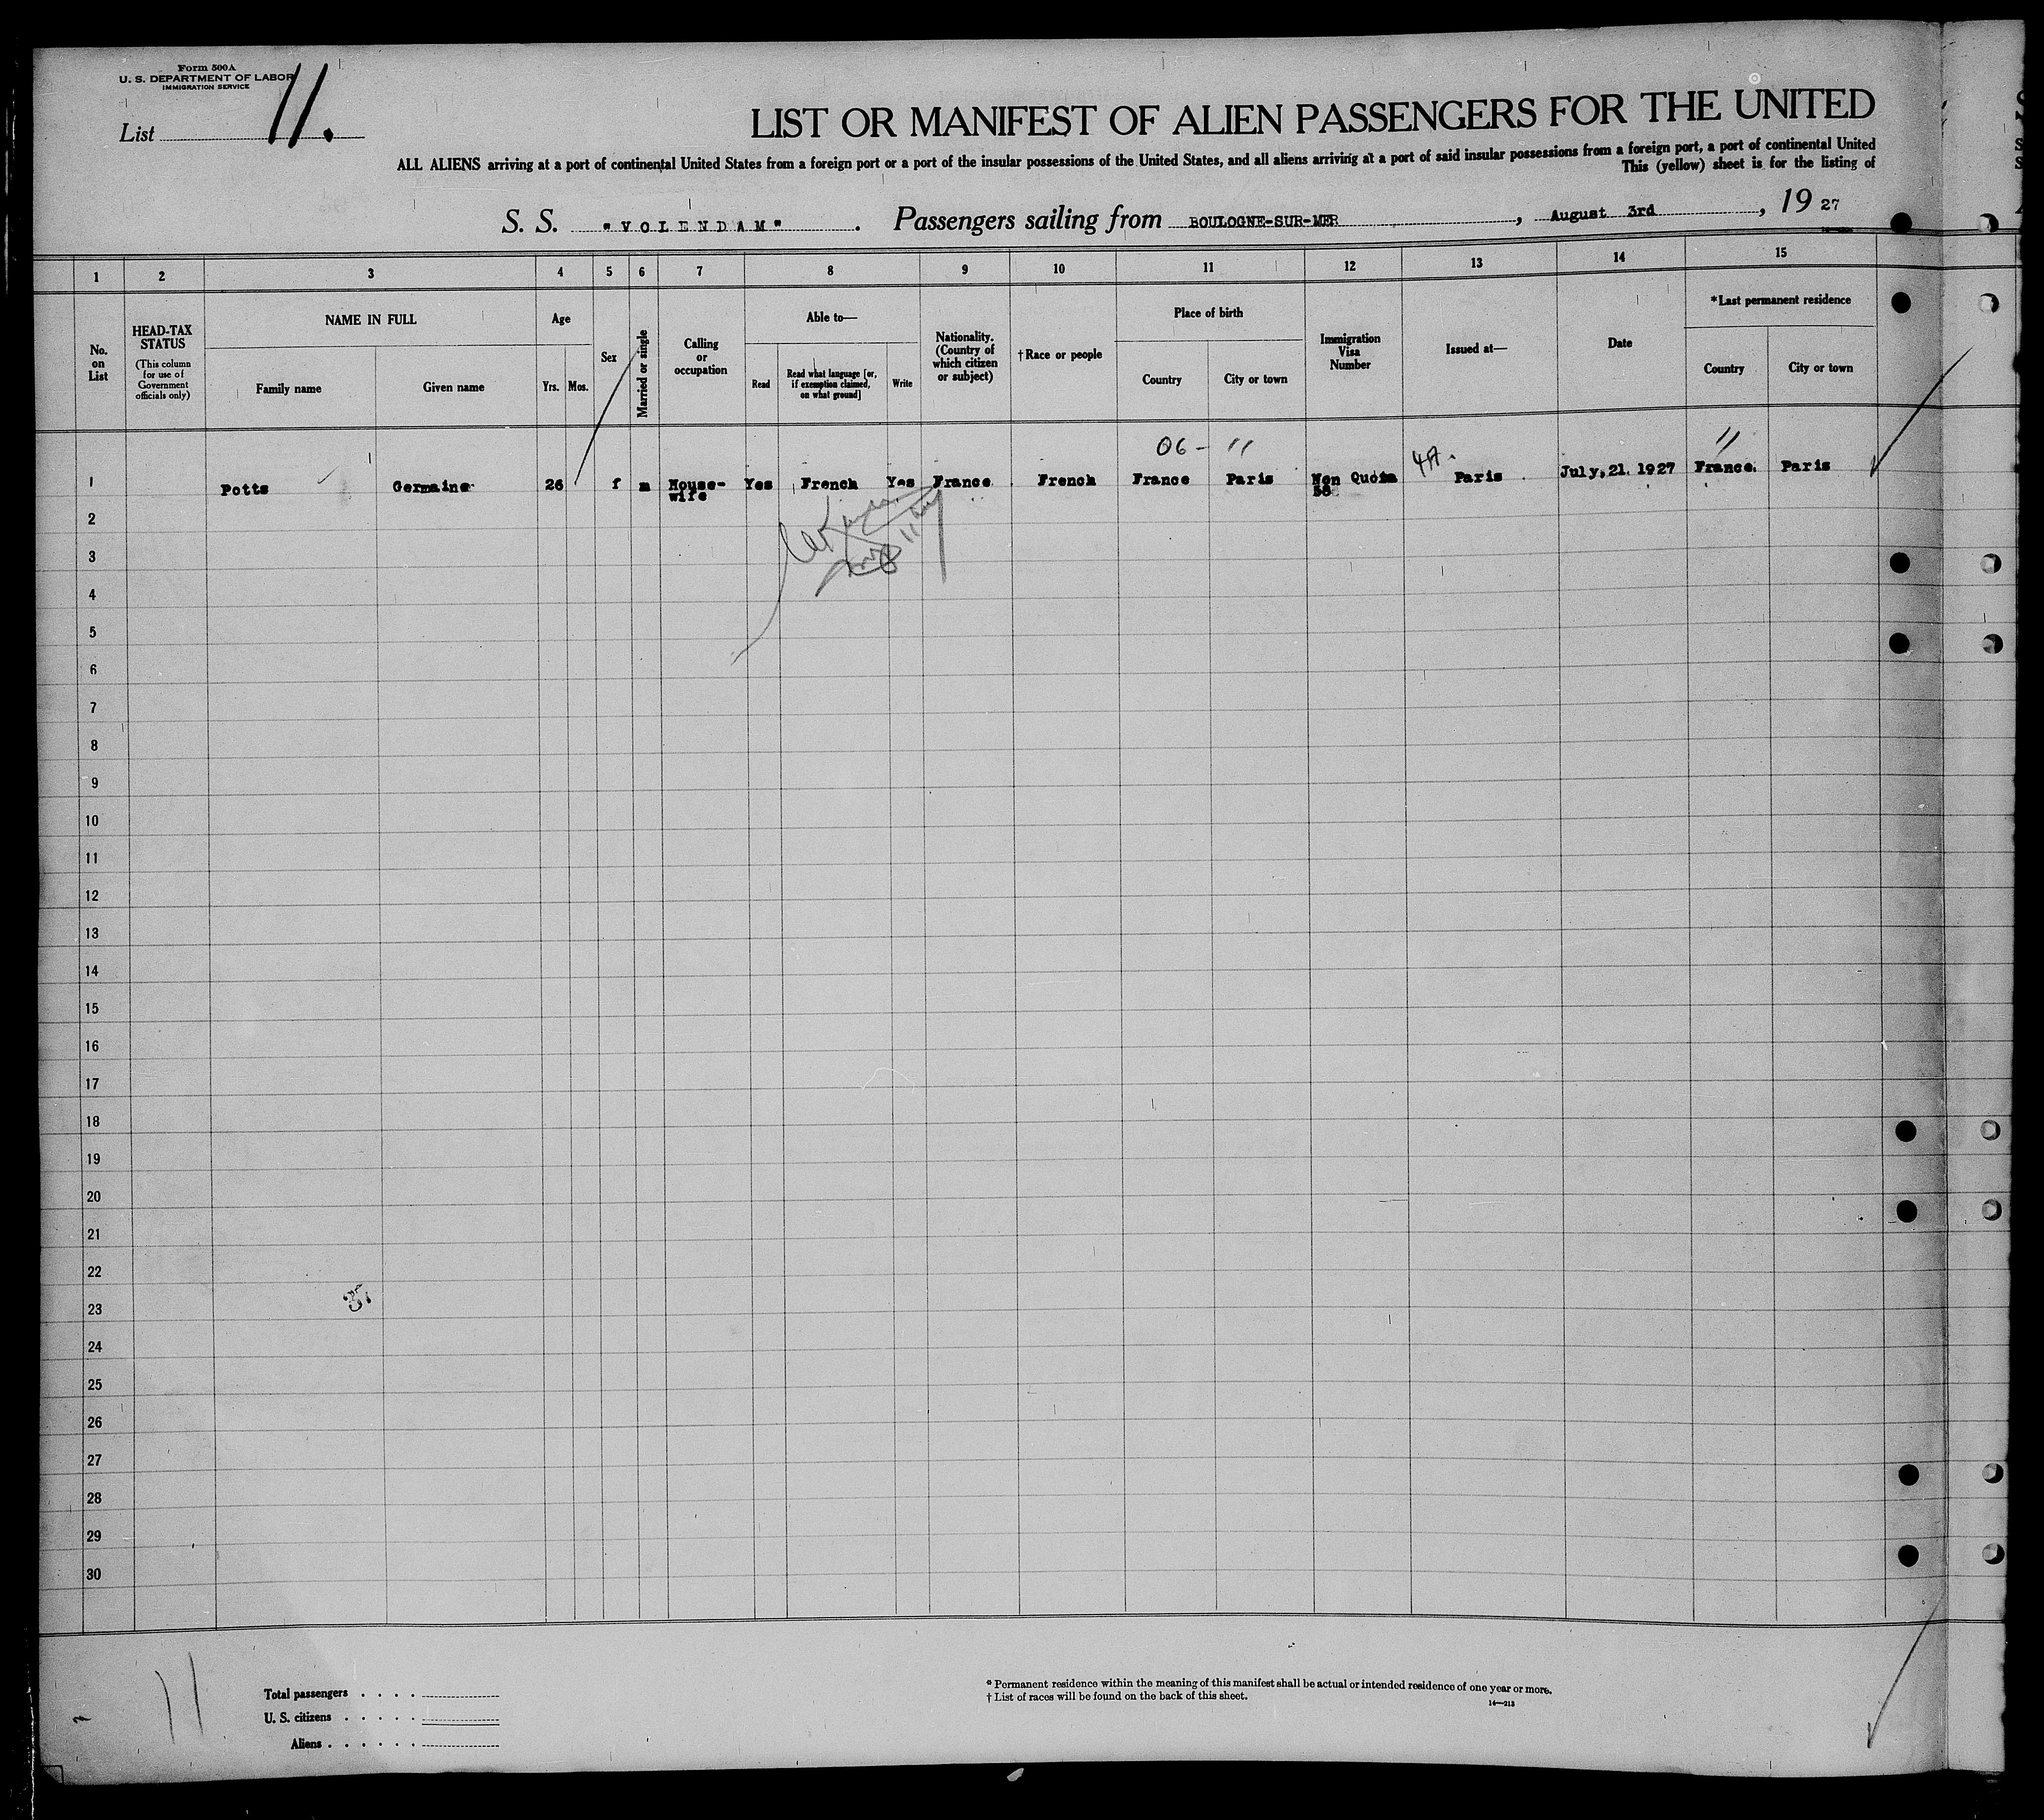 Form 500A
U. S. DEPARTMENT OF LABOR
IMMIGRATION SERVICE
List 11.
LIST OR MANIFEST OF ALIEN PASSENGERS FOR THE UNITED
ALL ALIENS arriving at a port of continental United States from a foreign port or a port of the insular possessions of the United States, and all aliens arriving at a port of said insular possessions from a foreign port, a port of continental United
This (yellow) sheet is for the listing of
S. S. "VOLENDAM". Passengers sailing from BOULOGNE-SUR-MER, August 3rd, 19 27
1 2 3 4 5 6 7 8 9 10 11 12 13 14 15
No. on List
HEAD-TAX STATUS
(This column for use of Government officials only)
NAME IN FULL
Family name
Given name
Age
Yrs. Mos.
Sex
Married or single
Calling or occupation
Able to—
Read
Read what language [or, if exemption claimed, on what ground]
Write
Nationality. (Country of which citizen or subject)
† Race or people
Place of birth
Country
City or town
Immigration Visa Number
Issued at—
Date
*Last permanent residence
Country
City or town
06 - 11
11
1 Potts Germaine 26 f m House-wife Yes French Yes France French France Paris Non Quota 58 Paris July, 21. 1927 France. Paris
2
3
4
5
6
7
8
9
10
11
12
13
14
15
16
17
18
19
20
21
22
23
24
25
26
27
28
29
30
11
Total passengers . . . .
U. S. citizens . . . . .
Aliens . . . . . .
* Permanent residence within the meaning of this manifest shall be actual or intended residence of one year or more.
† List of races will be found on the back of this sheet.
14—213